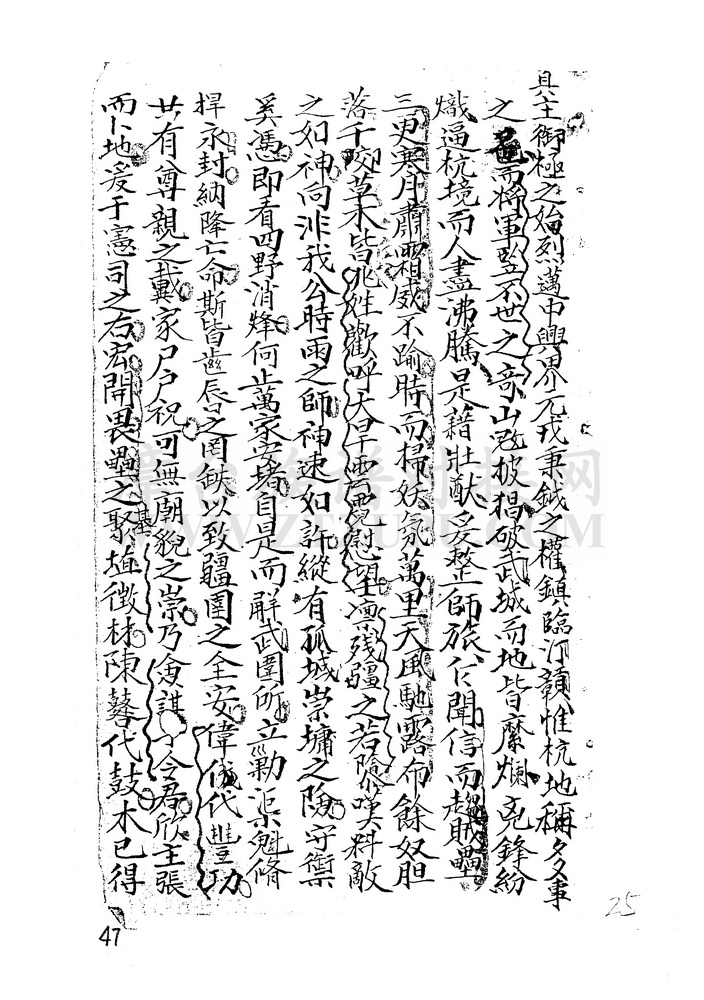 真主御極之始烈邁中興畀元戎秉鉞之權鎮臨汀韻惟杭地稱多事
之 而將軍竪不世之奇山逆披猖破武城而地皆糜爛克鋒紛
熾逼杭境而人盡沸騰是藉壯猷爰整師旅仁聞信而趨賊壘
三更寒月肅霜威不踰時而掃妖氛萬里天風馳露布餘奴胆
落千 草木皆兆姓歡呼天旱雲霓慰望凜殘疆之若 嘆料敵
之如神向非我公時雨之師神速如許縱有孤城崇墉之險守禦
奚憑即看四野消烽何止萬家安堵自是而解武圍所立勦渠魁脩
捍永封納降亡命斯皆齒唇之罔缺以致疆圉之全安偉伐代豐功
共有尊親之戴家尸戶祝可無廟貌之崇乃僉謀 令君欣主張
而卜地爰于憲司之右宏開畏壘之聚基埴徵材陳藝代鼓木已得
47
25